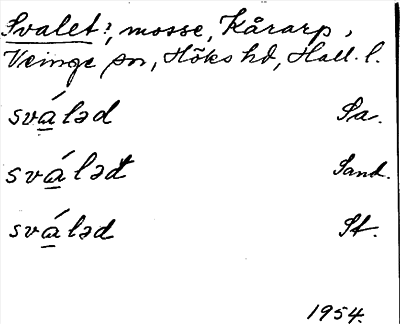 Svalet?, mosse, Kårarp,
Veinge sn, Höks hd, Hall. l.
sváləd Sa.
sváləd Sand.
sváləd St.
1954.